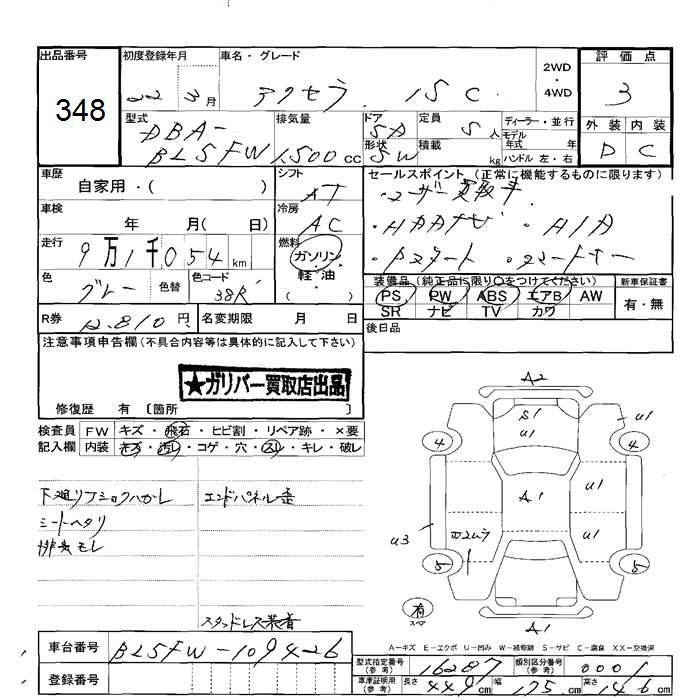 出品番号 初度登録年月 車名・グレード 2WD・4WD 評価点
348 22 3月 アクセラ 15C 3
型式 DBA-BL5FW 排気量 1,500cc ドア 5D 定員 5人 ディーラー・並行
形状 SW 積載 kg モデル年式 年 ハンドル 左・右
外装 内装
D C
車歴 自家用・( ) シフト AT セールスポイント (正常に機能するものに限ります)
・ユーザー買取車
車検 年 月( 日) 冷房 AC ・HDDナビ ・AIA
走行 9万1千054km 燃料 ガソリン・軽・油 ( ) ・Pスタート ・スマートキー
色 グレー 色替 色コード 38R
装備品 (純正品に限り○をつけてください) 新車保証書
PS PW ABS エアB AW 有・無
SR ナビ TV カワ
R券 12,810円 名変期限 月 日 後日品
注意事項申告欄(不具合内容等は具体的に記入して下さい)
★ガリバー買取店出品
修復歴 有 〔箇所 〕
検査員記入欄 FW キズ・飛石・ヒビ割・リペア跡・×要
内装 キズ・汚レ・コゲ・穴・スレ・キレ・破レ
下廻リフショクハカレ エンドパネル歪
シートヘタリ
排気モレ
スタッドレス装着
A2
S1
U1
U1
4 4
A1
U1
U3
U1
5 5
有
スペア
A1
A-キズ E-エクボ U-凹み W-補修跡 S-サビ C-腐食 XX-交換済
車台番号 BL5FW-109426
登録番号
型式指定番号(参考) 16287 類別区分番号(参考) 0001
車庫証明用(参考) 長さ 449cm 幅 175cm 高さ 146cm